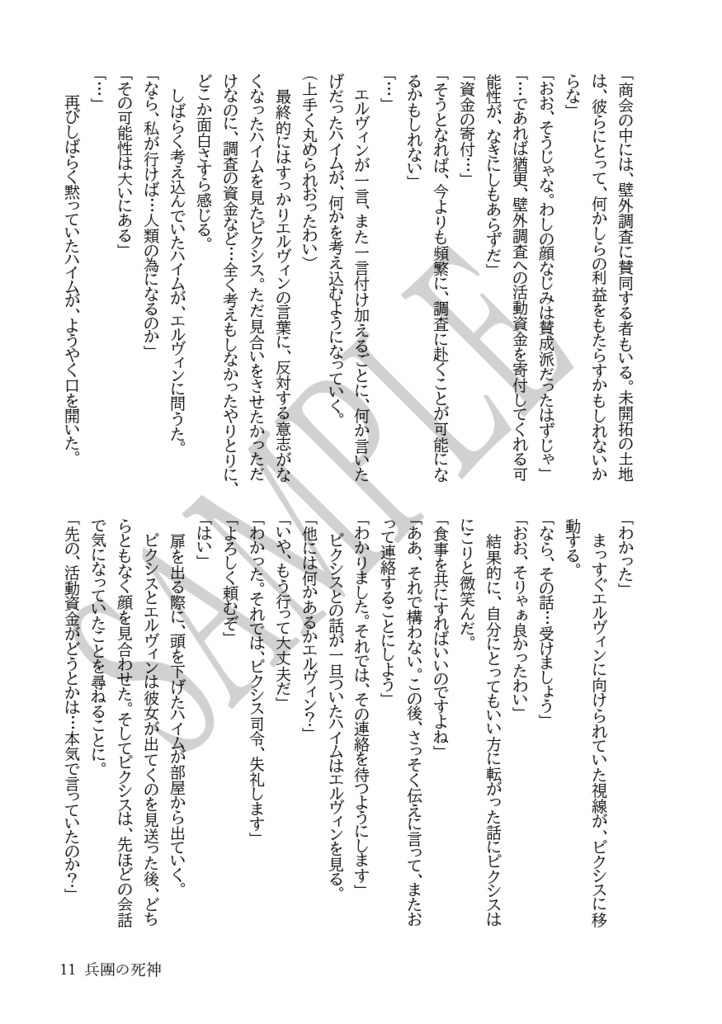 「商会の中には、壁外調査に賛同する者もいる。未開拓の土地
は、彼らにとって、何かしらの利益をもたらすかもしれないか
らな」
「おお、そうじゃな。わしの顔なじみは賛成派だったはずじゃ」
「…であれば猶更、壁外調査への活動資金を寄付してくれる可
能性が、なきにしもあらずだ」
「資金の寄付…」
「そうとなれば、今よりも頻繁に、調査に赴くことが可能にな
るかもしれない」
「…」
エルヴィンが一言、また一言付け加えるごとに、何か言いた
げだったハイムが、何かを考え込むようになっていく。
(上手く丸められおったわい)
最終的にはすっかりエルヴィンの言葉に、反対する意志がな
くなったハイムを見たピクシス。ただ見合いをさせたかっただ
けなのに、調査の資金など…全く考えもしなかったやりとりに、
どこか面白さすら感じる。
しばらく考え込んでいたハイムが、エルヴィンに問うた。
「なら、私が行けば…人類の為になるのか」
「その可能性は大いにある」
「…」
再びしばらく黙っていたハイムが、ようやく口を開いた。
「わかった」
まっすぐエルヴィンに向けられていた視線が、ピクシスに移
動する。
「なら、その話…受けましょう」
「おお、そりゃぁ良かったわい」
結果的に、自分にとってもいい方に転がった話にピクシスは
にこりと微笑んだ。
「食事を共にすればいいのですよね」
「ああ、それで構わない。この後、さっそく伝えに言って、またお
って連絡することにしよう」
「わかりました。それでは、その連絡を待つようにします」
ピクシスとの話が一旦ついたハイムはエルヴィンを見る。
「他には何かあるかエルヴィン?」
「いや、もう行って大丈夫だ」
「わかった。それでは、ピクシス司令、失礼します」
「よろしく頼むぞ」
「はい」
扉を出る際に、頭を下げたハイムが部屋から出ていく。
ピクシスとエルヴィンは彼女が出てくのを見送った後、どち
らともなく顔を見合わせた。そしてピクシスは、先ほどの会話
で気になっていたことを尋ねることに。
「先の、活動資金がどうとかは…本気で言っていたのか?」
11 兵團の死神
SAMPLE